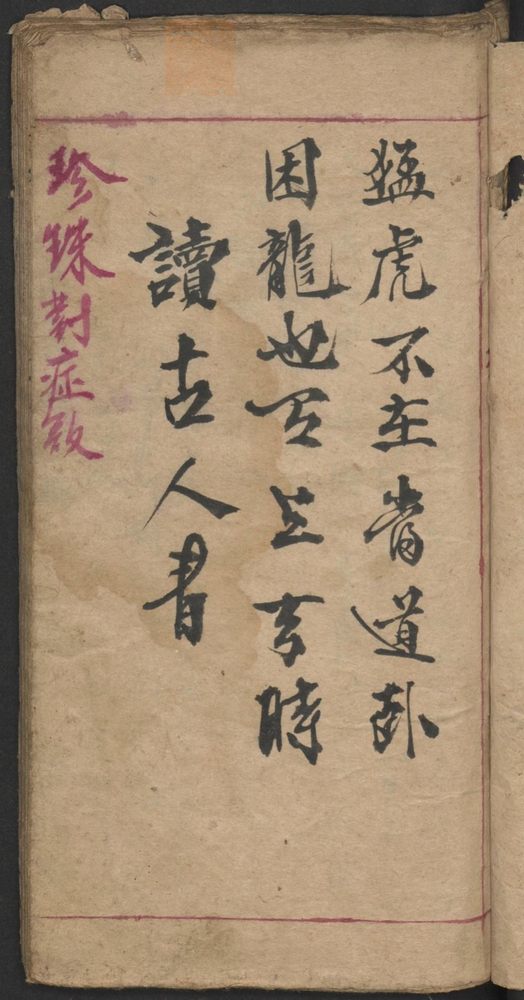 猛虎不在當道卧
困龍也有上天時
讀古人書
珍珠對症段